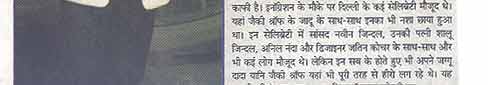 काफी है। इनाग्रेशन के मौके पर दिल्ली के कई सेलिब्रेटी मौजूद थे।
यहां जैकी श्रॉफ के जादू के साथ-साथ इनका भी नशा छाया हुआ
था। इन सेलिब्रेटी में सांसद नवीन जिन्दल, उनकी पत्नी शालू
जिन्दल, अनिल नंदा और डिजाइनर जतिन कोचर के साथ-साथ और
भी कई लोग मौजूद थे। लेकिन इन सब के होते हुए भी अपने जग्गू
दादा यानि जैकी श्रॉफ यहां भी पूरी तरह से हीरो लग रहे थे। यह